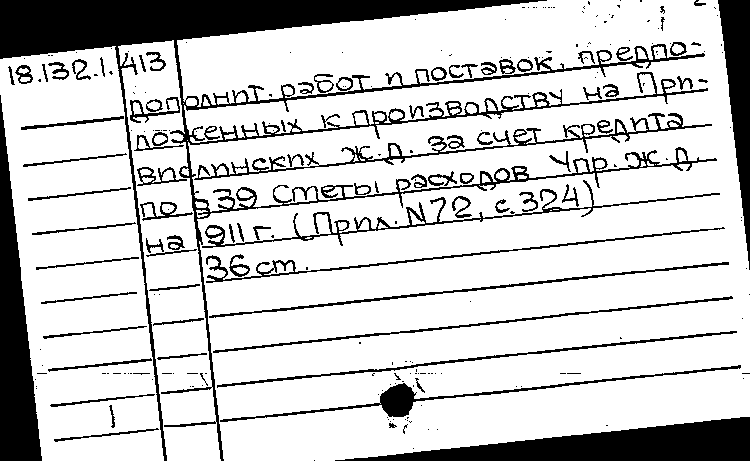 18.132.1.413
дополнит. работ и поставок, предпо-
ложенных к производству на При-
вислинских ж.д. за счет кредита
по §39 сметы расходов Упр. ж.д.
на 1911 г. (Прил. N72, с. 324)
36 ст.